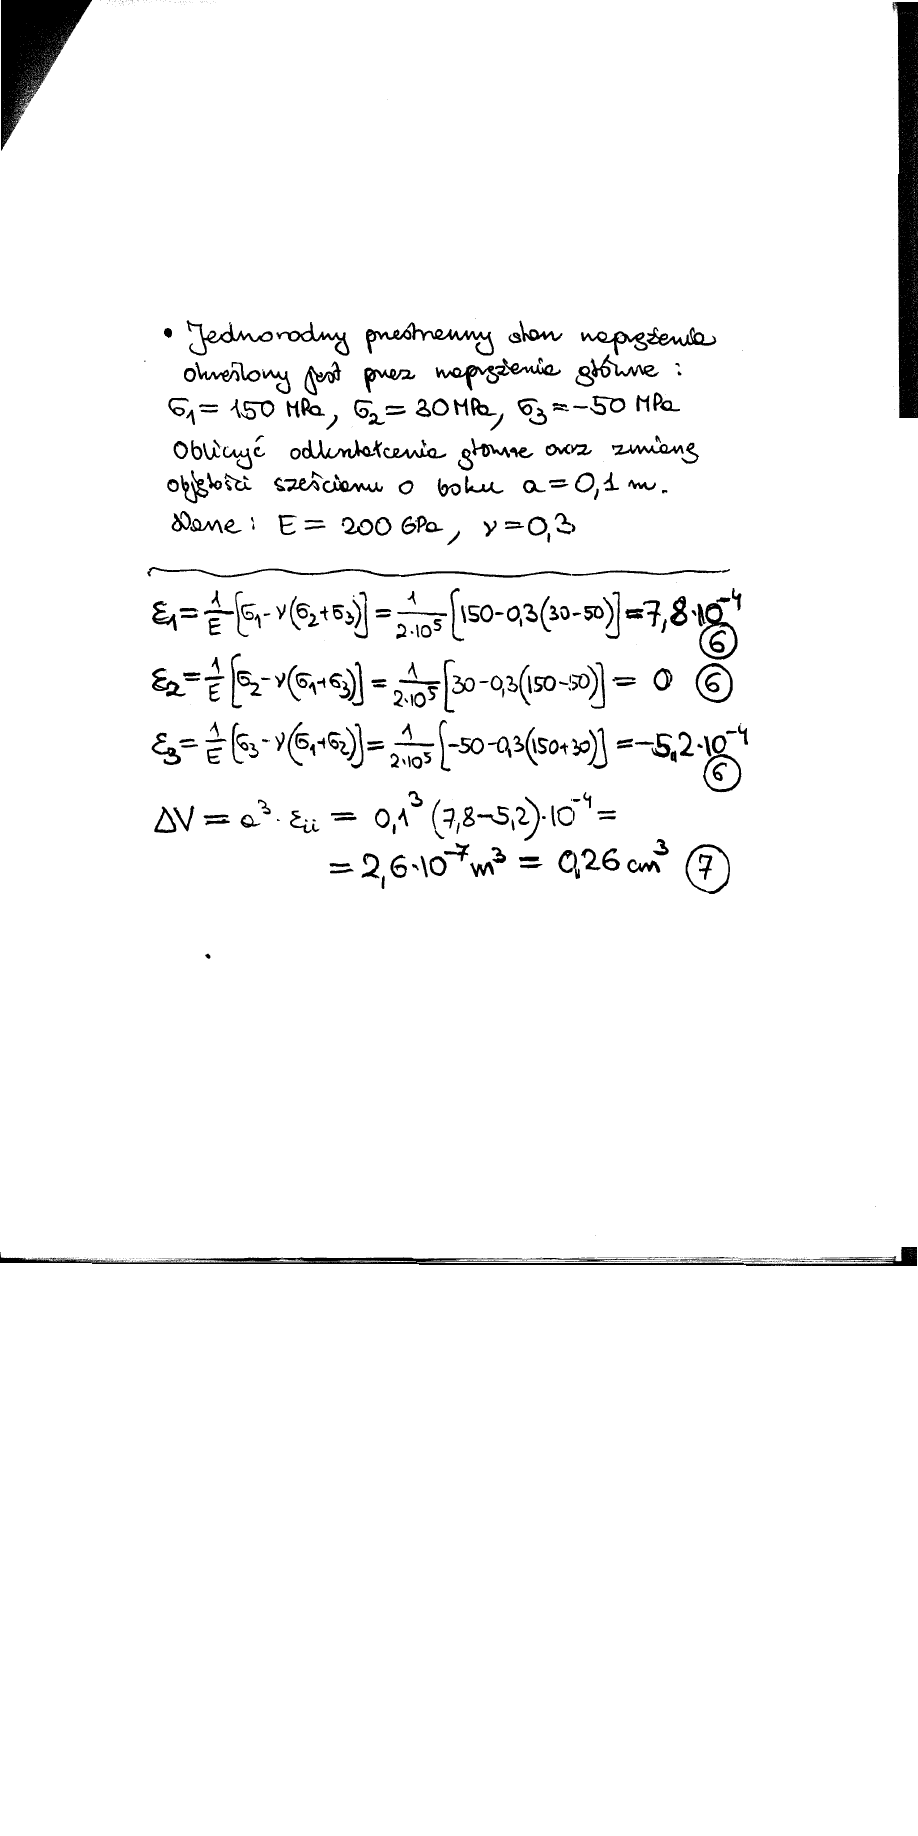 • Jednorodny przestrzenny stan naprężenia
określony jest przez naprężenia główne :
σ₁ = 150 MPa, σ₂ = 30 MPa, σ₃ = -50 MPa
Obliczyć odkształcenia główne oraz zmianę
objętości sześcianu o boku a = 0,1 m.
Dane : E = 200 GPa, ν = 0,3
ε₁ = 1/E [σ₁ - ν(σ₂+σ₃)] = 1/2·10⁵ [150-0,3(30-50)] = 7,8·10⁻⁴
6
ε₂ = 1/E [σ₂ - ν(σ₁+σ₃)] = 1/2·10⁵ [30-0,3(150-50)] = 0 6
ε₃ = 1/E [σ₃ - ν(σ₁+σ₂)] = 1/2·10⁵ [-50-0,3(150+30)] = -5,2·10⁻⁴
6
ΔV = a³ · εᵢᵢ = 0,1³ (7,8-5,2)·10⁻⁴ =
= 2,6·10⁻⁷ m³ = 0,26 cm³ 7